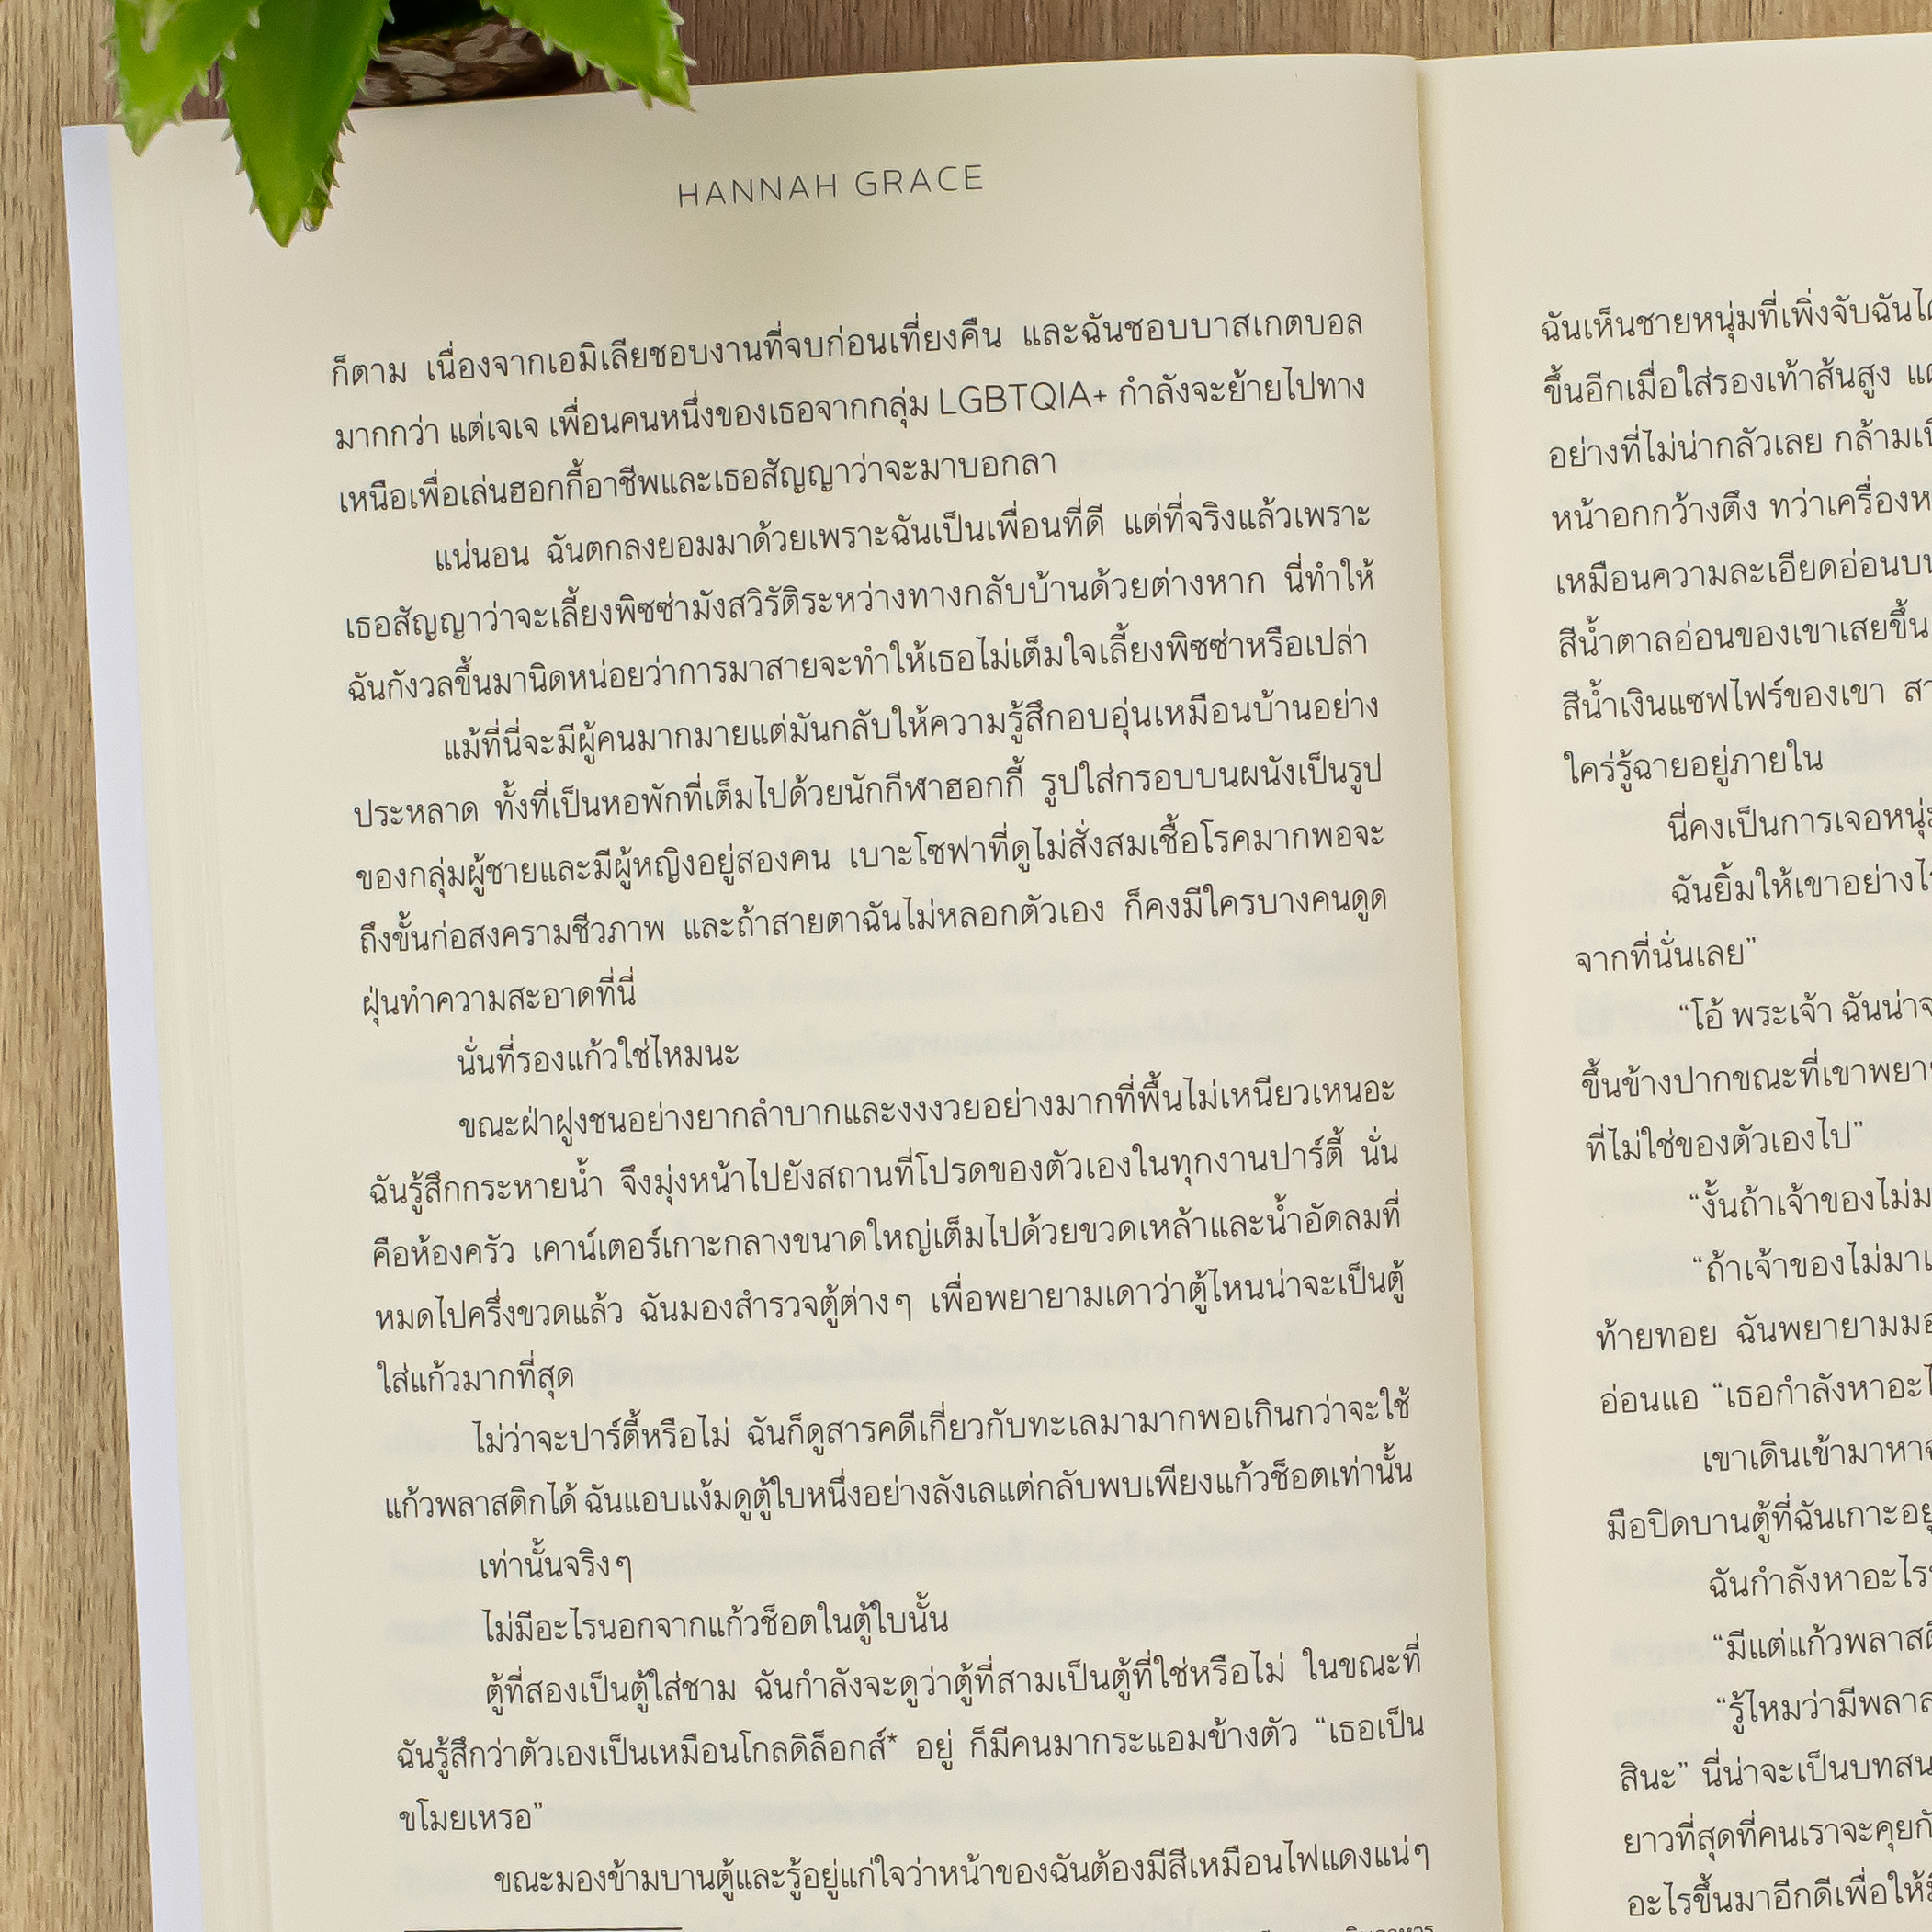 HANNAH GRACE
ก็ตาม เนื่องจากเอมิเลียชอบงานที่จบก่อนเที่ยงคืน และฉันชอบบาสเกตบอล
มากกว่า แต่เจเจ เพื่อนคนหนึ่งของเธอจากกลุ่ม LGBTQIA+ กำลังจะย้ายไปทาง
เหนือเพื่อเล่นฮอกกี้อาชีพและเธอสัญญาว่าจะมาบอกลา
แน่นอน ฉันตกลงยอมมาด้วยเพราะฉันเป็นเพื่อนที่ดี แต่ที่จริงแล้วเพราะ
เธอสัญญาว่าจะเลี้ยงพิซซ่ามังสวิรัติระหว่างทางกลับบ้านด้วยต่างหาก นี่ทำให้
ฉันกังวลขึ้นมานิดหน่อยว่าการมาสายจะทำให้เธอไม่เต็มใจเลี้ยงพิซซ่าหรือเปล่า
แม้ที่นี่จะมีผู้คนมากมายแต่มันกลับให้ความรู้สึกอบอุ่นเหมือนบ้านอย่าง
ประหลาด ทั้งที่เป็นหอพักที่เต็มไปด้วยนักกีฬาฮอกกี้ รูปใส่กรอบบนผนังเป็นรูป
ของกลุ่มผู้ชายและมีผู้หญิงอยู่สองคน เบาะโซฟาที่ดูไม่สั่งสมเชื้อโรคมากพอจะ
ถึงขั้นก่อสงครามชีวภาพ และถ้าสายตาฉันไม่หลอกตัวเอง ก็คงมีใครบางคนดูด
ฝุ่นทำความสะอาดที่นี่
นั่นที่รองแก้วใช่ไหมนะ
ขณะฝ่าฝูงชนอย่างยากลำบากและงงงวยอย่างมากที่พื้นไม่เหนียวเหนอะ
ฉันรู้สึกกระหายน้ำ จึงมุ่งหน้าไปยังสถานที่โปรดของตัวเองในทุกงานปาร์ตี้ นั่น
คือห้องครัว เคาน์เตอร์เกาะกลางขนาดใหญ่เต็มไปด้วยขวดเหล้าและน้ำอัดลมที่
หมดไปครึ่งขวดแล้ว ฉันมองสำรวจตู้ต่างๆ เพื่อพยายามเดาว่าตู้ไหนน่าจะเป็นตู้
ใส่แก้วมากที่สุด
ไม่ว่าจะปาร์ตี้หรือไม่ ฉันก็ดูสารคดีเกี่ยวกับทะเลมามากพอเกินกว่าจะใช้
แก้วพลาสติกได้ ฉันแอบแง้มดูตู้ใบหนึ่งอย่างลังเลแต่กลับพบเพียงแก้วช็อตเท่านั้น
เท่านั้นจริงๆ
ไม่มีอะไรนอกจากแก้วช็อตในตู้ใบนั้น
ตู้ที่สองเป็นตู้ใส่ชาม ฉันกำลังจะดูว่าตู้ที่สามเป็นตู้ที่ใช่หรือไม่ ในขณะที่
ฉันรู้สึกว่าตัวเองเป็นเหมือนโกลดิล็อกส์* อยู่ ก็มีคนมากระแอมข้างตัว “เธอเป็น
ขโมยเหรอ”
ขณะมองข้ามบานตู้และรู้อยู่แก่ใจว่าหน้าของฉันต้องมีสีเหมือนไฟแดงแน่ๆ
ฉันเห็นชายหนุ่มที่เพิ่งจับฉัน
ขึ้นอีกเมื่อใส่รองเท้าส้นสูง
อย่างที่ไม่น่ากลัวเลย
หน้าอกกว้างตึง
เหมือนความละเอียดอ่อน
สีน้ำตาลอ่อนของเขาเสยขึ้น
สีน้ำเงินแซฟไฟร์ของเขา
ใคร่รู้ฉายอยู่ภายใน
นี่คงเป็นการเจอ
ฉันยิ้มให้เขาอย่าง
จากที่นั่นเลย”
“โอ้ พระเจ้า ฉันน่า
ขึ้นข้างปากขณะที่เขา
ที่ไม่ใช่ของตัวเองไป”
“งั้นถ้าเจ้าของไม่
“ถ้าเจ้าของไม่มา
ท้ายทอย ฉันพยายาม
อ่อนแอ “เธอกำลังหา
เขาเดินเข้ามาหา
มือปิดบานตู้ที่ฉันเกาะ
ฉันกำลังหาอะไร
“มีแต่แก้ว
“รู้ไหมว่ามี
สินะ” นี่น่าจะเป็น
ยาวที่สุดที่คนเราจะ
อะไรขึ้นมาอีกดีเพื่อให้